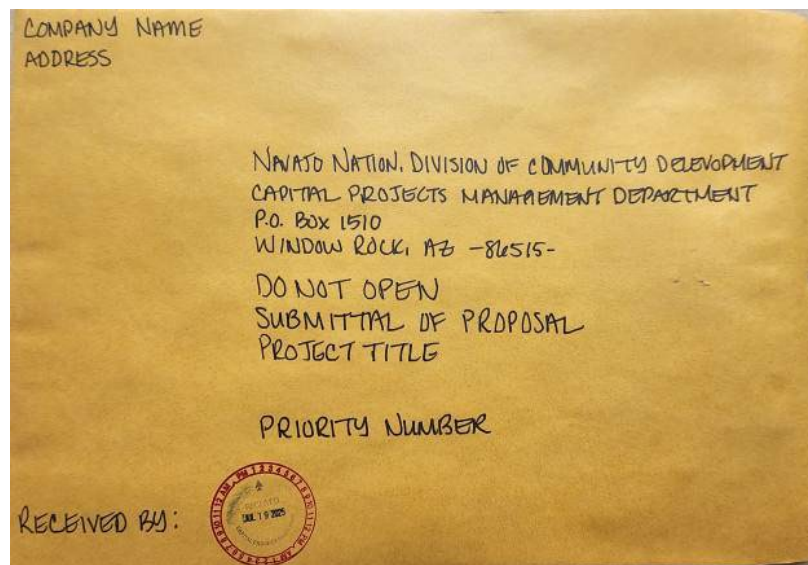 COMPANY NAME
ADDRESS
NAVAJO NATION, DIVISION OF COMMUNITY DELEVOPMENT
CAPITAL PROJECTS MANAGEMENT DEPARTMENT
P.O. BOX 1510
WINDOW ROCK, AZ -86515-
DO NOT OPEN
SUBMITTAL OF PROPOSAL
PROJECT TITLE
PRIORITY NUMBER
RECEIVED BY:
RECEIVED